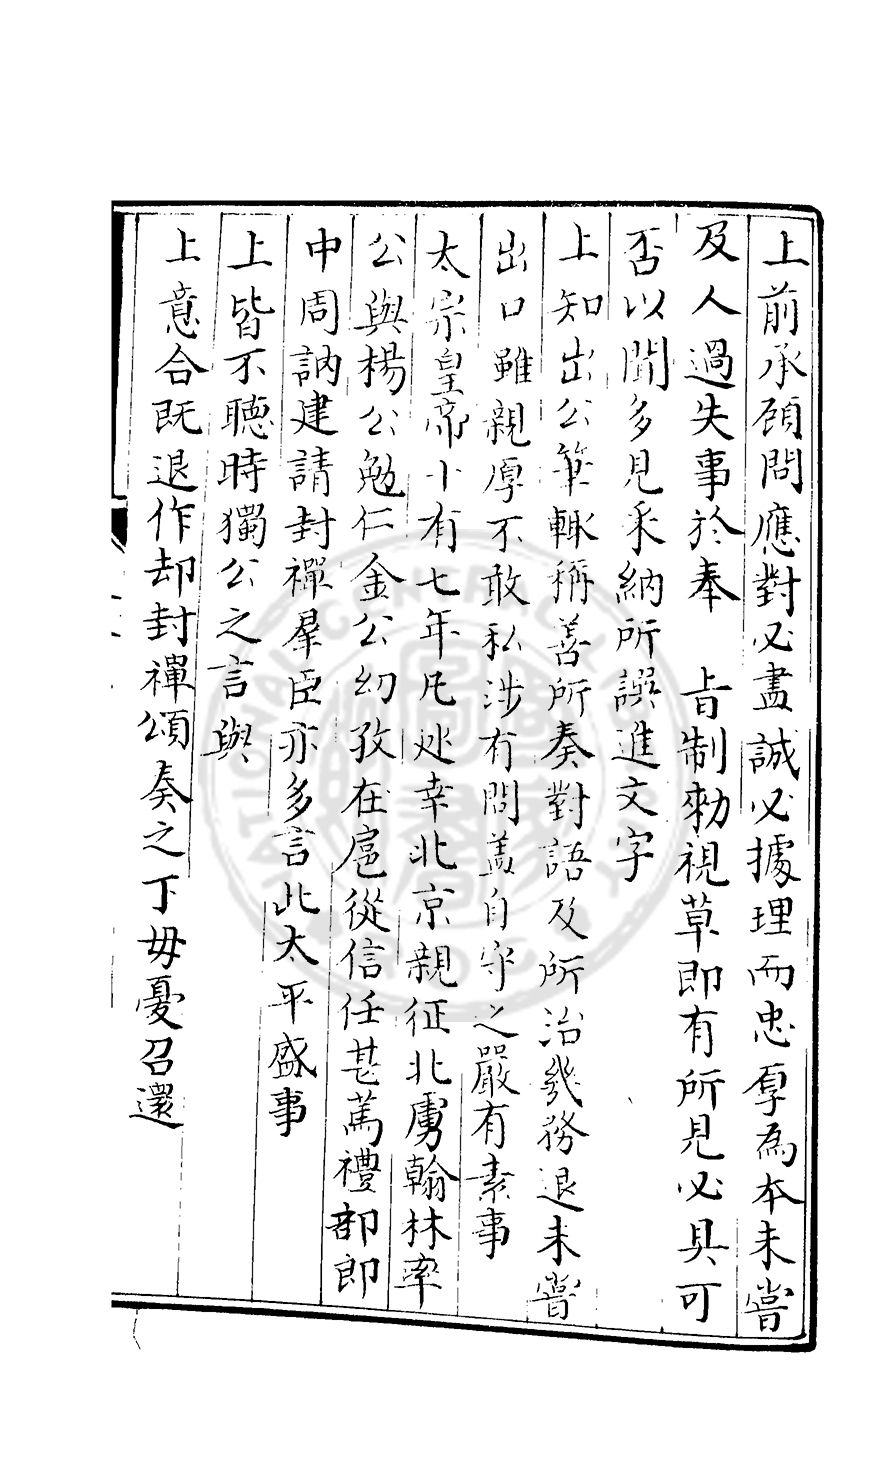 上前承顧問應對必盡誠必據理而忠厚為本未嘗
及人過失事於奉 旨制勑視草即有所見必具可
否以聞多見采納所譔進文字
上知出公筆輙稱善所奏對語及所治幾務退未嘗
出口雖親厚不敢私涉有問蓋自守之嚴有素事
太宗皇帝十有七年凡廵幸北京親征北虜翰林率
公與楊公勉仁金公幼孜在扈從信任甚篤禮部郎
中周訥建請封禪羣臣亦多言此太平盛事
上皆不聽時獨公之言與
上意合既退作却封禪頌奏之丁毋憂召還